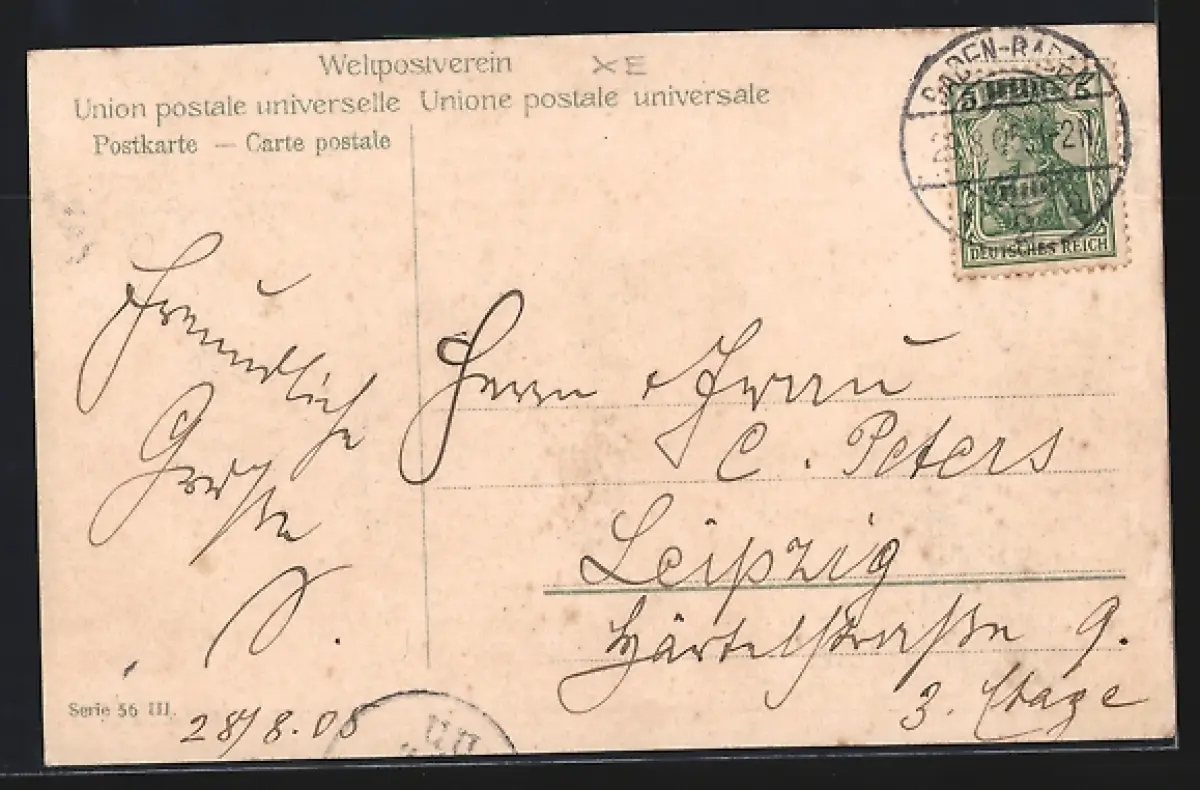 Weltpostverein XE
Union postale universelle Unione postale universale
Postkarte — Carte postale
BADEN-BADEN
5 5
DEUTSCHES REICH
Freundliche
Grüße
Herrn & Frau
C. Peters
Leipzig
Härtelstraße 9.
3. Etage
Serie 56 III.
28/8.05